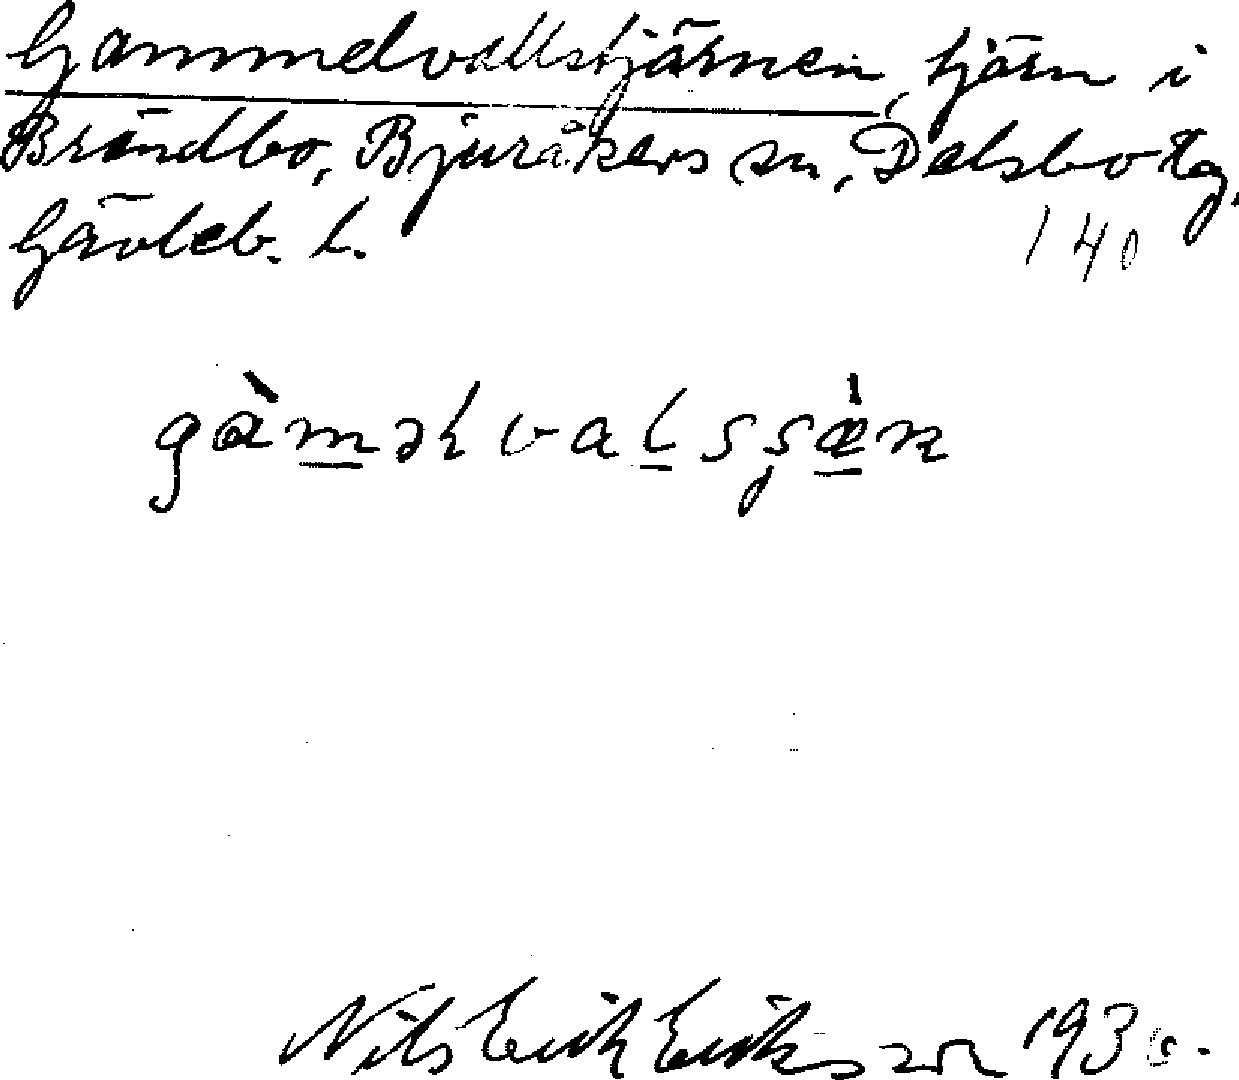 Gammelvallstjärnen, tjärn i
Brändbo, Bjuråkers sn, Delsbo tg,
Gävleb. l.
140
gàməlvalsʂæ̀n
Nils Erik Eriksson 193